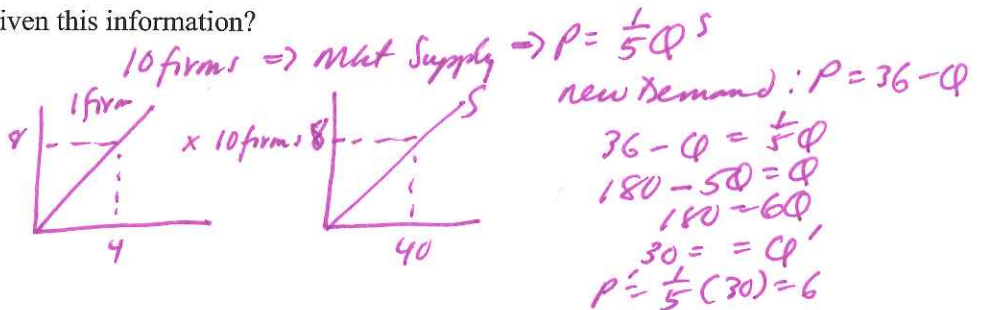 iven this information?
10 firms => Mkt Supply => P = 1/5 Q^S
new Demand : P = 36 - Q
1 firm
8
4
x 10 firms
8
S
40
36 - Q = 1/5 Q
180 - 5Q = Q
180 = 6Q
30 = = Q'
P' = 1/5 (30) = 6